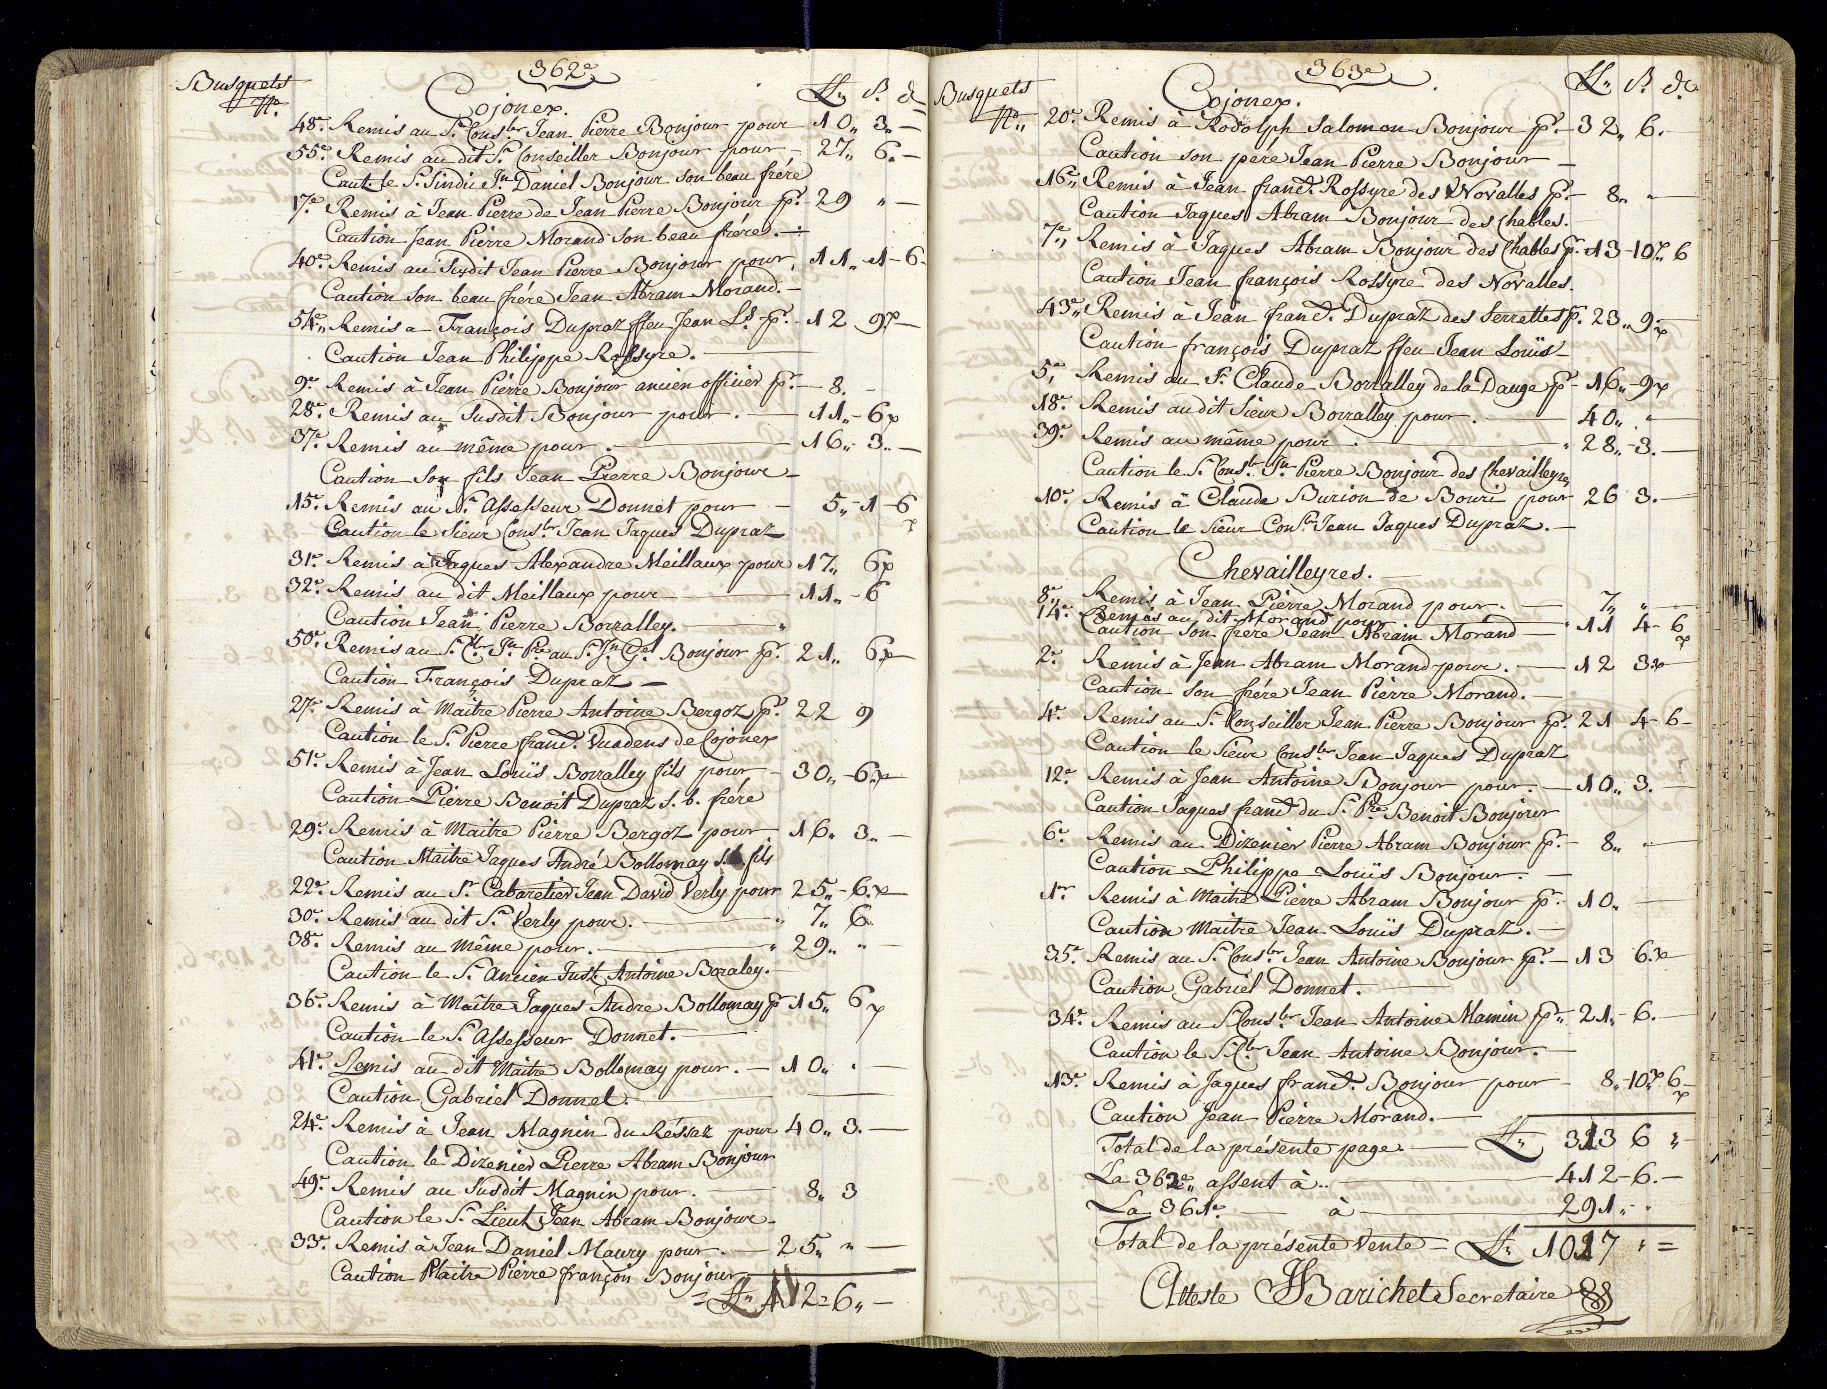 362e
Busquets
No.
Cojonex.
L. B. d.
48e. Remis au Sr. Conser. Jean Pierre Bonjour pour 10,, 3,, —
55e. Remis au dit Sr. Conseiller Bonjour pour — 27,, 6. —
Caut. le Sr. Sindic Jn. Daniel Bonjour son beau frére
17e. Remis à Jean Pierre de Jean Pierre Bonjour pr. 29 " —
Caution Jean Pierre Morand son beau frére. —
40e. Remis au Susdit Jean Pierre Bonjour pour, 11,, 1 - 6.
Caution son beau frére Jean Abram Morand. —
54e,, Remis a François Dupraz ffeu Jean Ls. pr. — 12 9. —
Caution Jean Philippe Rossyre. —
9e. Remis à Jean Pierre Bonjour ancien officier pr. — 8. -
28e. Remis au Susdit Bonjour pour. — 11,, - 6
37e. Remis au même pour. — 16,, 3,, —
Caution Son fils Jean Pierre Bonjour —
15e. Remis au Sr. Assesseur Donnet pour — 5,, - 1 - 6
Caution le Sieur Conser. Jean Jaques Dupraz
31e. Remis à Jaques Alexandre Meillaux pour 17,, 6
32e. Remis au dit Meillaux pour — 11,, - 6
Caution Jean Pierre Borralley. — "
50e. Remis au Sr. Cler. Jn. Pre au Sr. Jn. Gel. Bonjour pr. 21,, 6
Caution François Dupraz —
27e. Remis à Maitre Pierre Antoine Bergoz pr. 22 9
Caution le Sr. Pierre franc. Vuadens de Cojonex
51e. Remis à Jean Louïs Borralley fils pour — 30,, - 6.
Caution Pierre Benoit Dupraz s. b. frére
29e. Remis à Maitre Pierre Bergoz pour 16,, 3,, —
Caution Maitre Jaques André Bollomay s. b. fils
22e. Remis au Sr. Cabaretier Jean David Verly pour 25,, - 6.
30e. Remis au dit Sr. Verly pour. — " 7,, 6
38e. Remis au même pour. — " 29,, " —
Caution le Sr. Ancien Just. Antoine Boraley. —
36e. Remis à Maître Jaques Andre Bollomay pr 15,, 6
Caution le Sr. Assesseur Donnet. —
41e. Remis au dit Maitre Bollomay pour. — 10,, " —
Caution Gabriel Donnet. —
24e. Remis à Jean Magnin du Réssat pour 40,, 3. —
Caution le Dizenier Pierre Abram Bonjour
49e. Remis au Susdit Magnin pour. — 8,, 3
Caution le Sr. Lieut. Jean Abram Bonjour —
33e. Remis à Jean Daniel Maury pour. — 25,, " —
Caution Maitre Pierre françon Bonjour
= L,, 412 = 6,, —
363e
Busquets
No,,
Cojonex.
L,, B. d.
20e. Remis à Rodolph Salomon Bonjour pr. — 32,, 6. —
Caution son pére Jean Pierre Bonjour —
16e,, Remis à Jean franc. Rossyre des Novalles pr. — 8,, " —
Caution Jaques Abram Bonjour des Chables.
7e,, Remis à Jaques Abram Bonjour des Chables pr. 13 - 10,, 6
Caution Jean françois Rossyre des Novalles.
43e,, Remis à Jean franc. Dupraz des Serrettes pr. 23,, 9. —
Caution françois Dupraz ffeu Jean Louïs —
5e,, Remis au Sr. Claude Borralley de la Dauge pr — 16,, - 9
18e. Remis au dit Sieur Borralley pour. — 40,, "
39e. Remis au même pour. — " 28,, - 3. —
Caution le Sr. Conser. Jn. Pierre Bonjour des Chevailleyres
10e. Remis à Claude Burion de Bouri pour 26 3. —
Caution le Sieur Conser. Jean Jaques Dupraz. —
Chevailleyres. —
8e,, Remis à Jean Pierre Morand pour. — 7,, " —
14e. Remis au dit Morand pour " 11 4 - 6
Caution son frére Jean Abram Morand —
2e. Remis à Jean Abram Morand pour. — 12 3.
Caution son frére Jean Pierre Morand. —
4e. Remis au Sr. Conseiller Jean Pierre Bonjour pr. 21 4 - 6 -
Caution le Sieur Conser. Jean Jaques Dupraz
12e. Remis à Jean Antoine Bonjour pour. — 10,, 3. —
Caution Jaques franc du Sr. Pre. Benoit Bonjour
6e. Remis au Dizenier Pierre Abram Bonjour pr. — 8,, " —
Caution Philippe Louïs Bonjour. —
1er Remis à Maitre Pierre Abram Bonjour pr. 10,, —
Caution Maitre Jean Louïs Dupraz. —
35e. Remis au Sr. Conser. Jean Antoine Bonjour pr. — 13 6.
Caution Gabriel Donnet. —
34e. Remis au Sr. Conser. Jean Antoine Mamin pr. 21,, - 6. —
Caution le Sr. Cler. Jean Antoine Bonjour. —
13e. Remis à Jaques franc. Bonjour pour — 8,, - 10 6 —
Caution Jean Pierre Morand. —
Total de la présente page. — L,, 313 6 " —
La 362e,, assent à.. — 412 - 6. —
La 361e. — à — 291,, - "
Total de la présente Vente — L,, 1017 " =
Atteste Barichet Secretaire